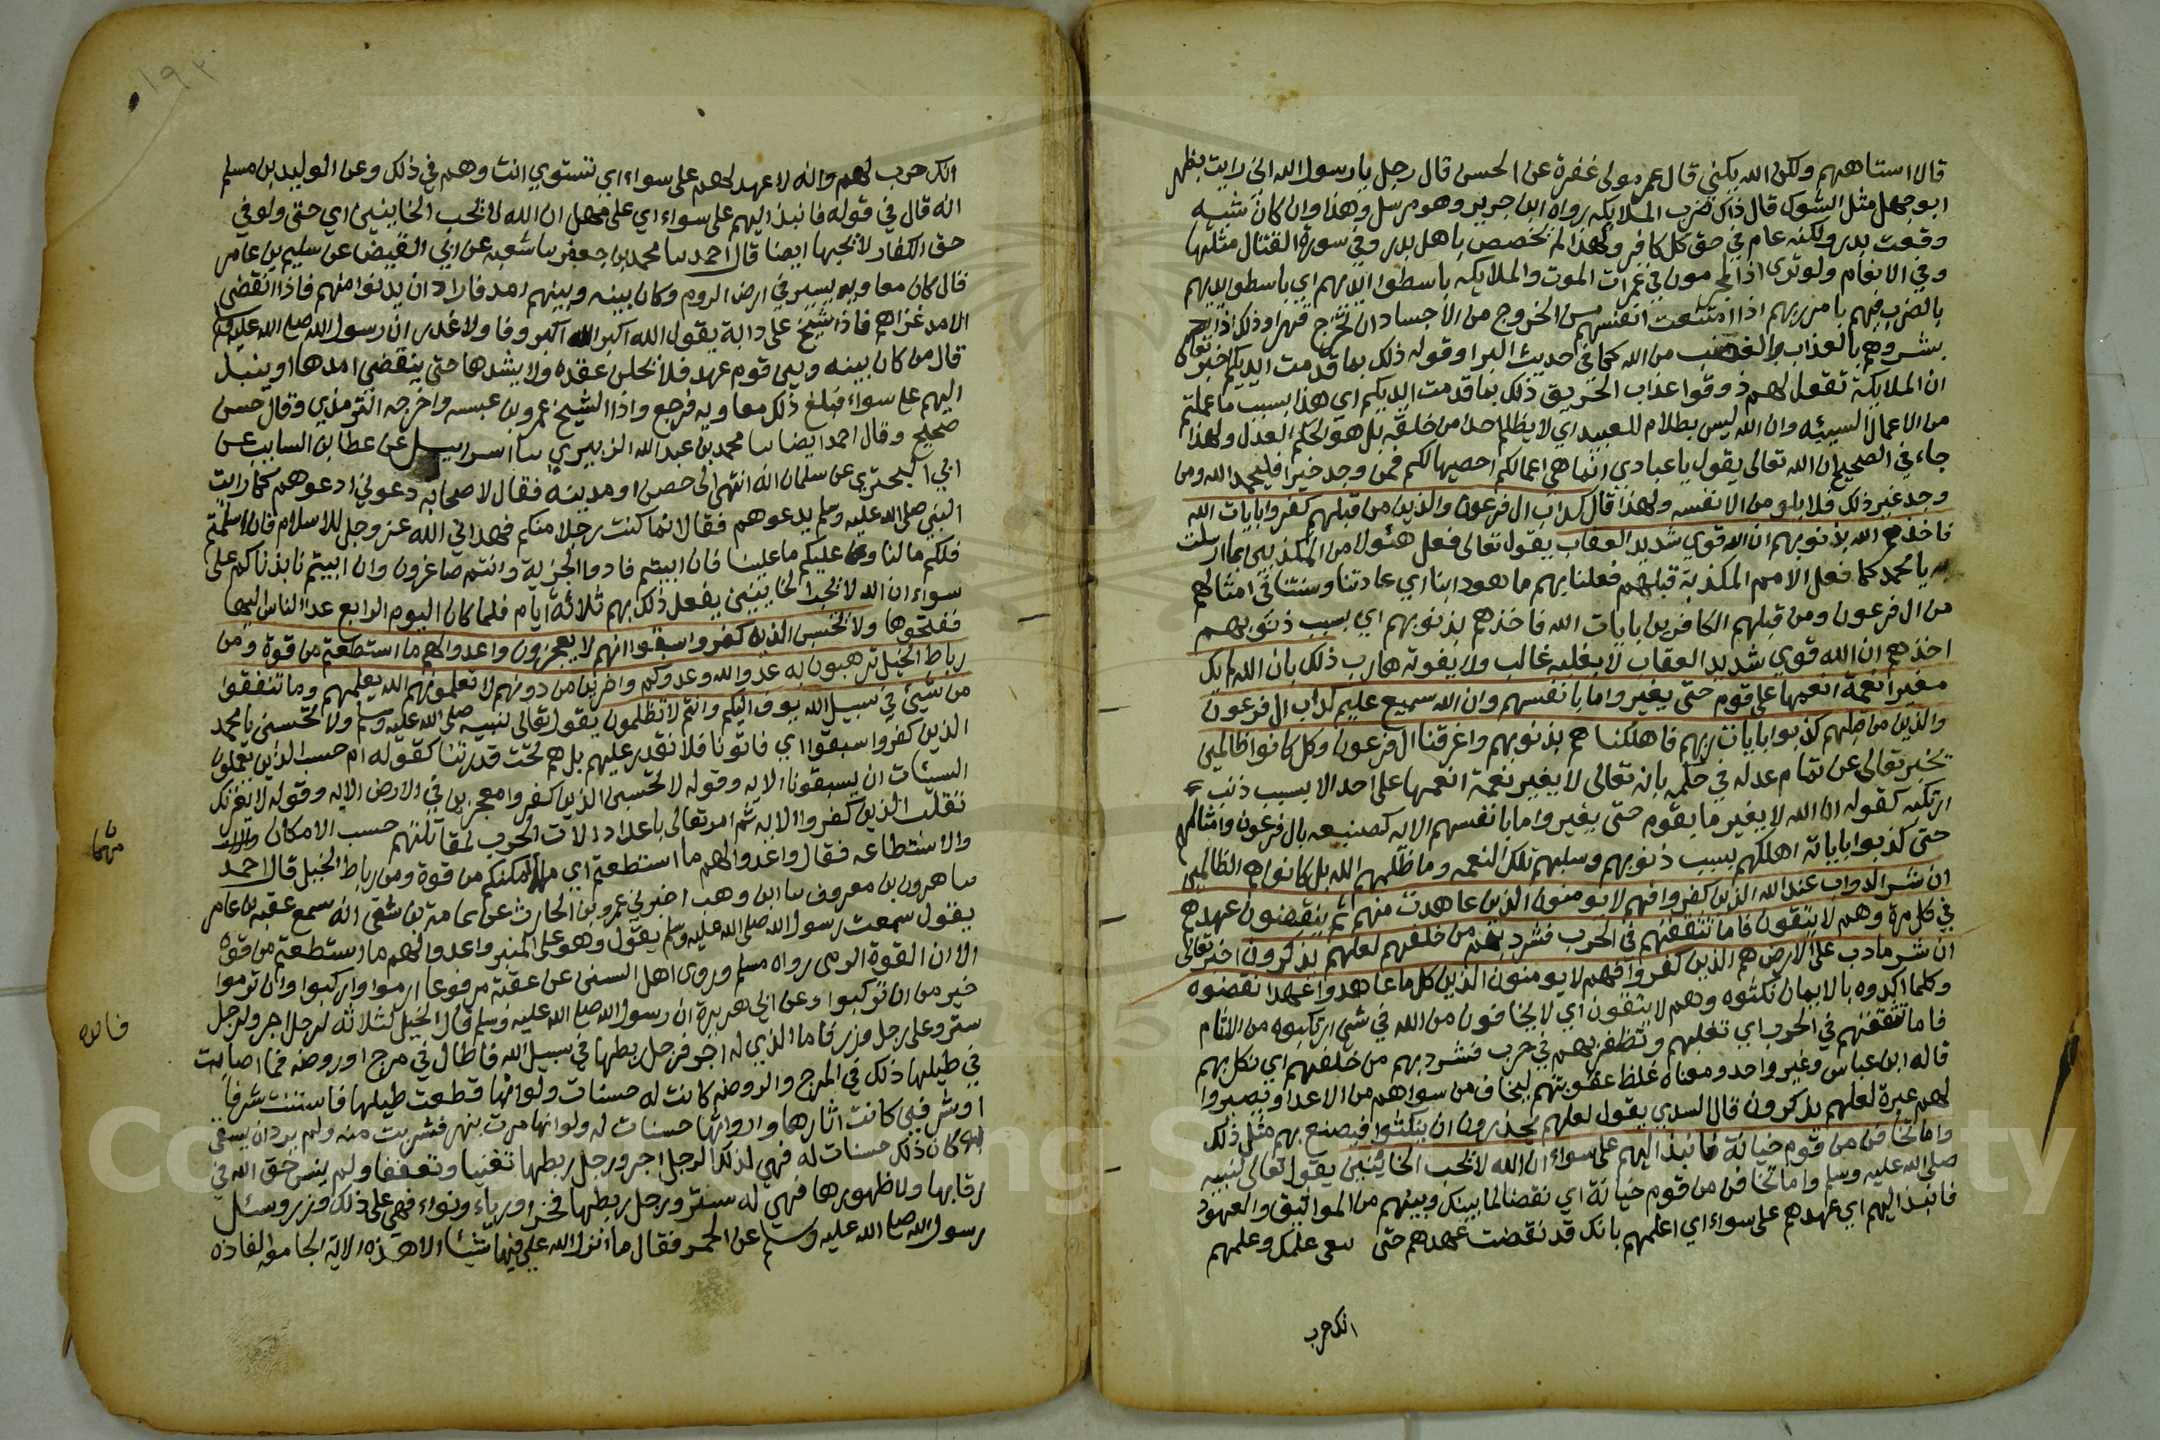 قال استاههم ولكن الله يكني قال عمر مولى غفرة عن الحسن قال رجل يا رسول الله اني رايت بظهر
ابو جهل مثل الشوك قال ذاك ضرب الملايكه رواه ابن جرير وهو مرسل وهذا وان كان سببه
وقعت بدر ولكنه عام في حق كل كافر ولهذا لم يخصص باهل بدر وفي سورة القتال مثلها
وفي الانعام ولو ترى اذ المجرمون في غمرات الموت والملايكه باسطوا ايديهم اي باسطوا ايديهم
بالضرب فيهم بامر ربهم اذا امتنعت انفسهم من الخروج من الاجساد ان تخرج قهرا وذلك اذا
بشروهم بالعذاب والغضب من الله كما في حديث البرا وقوله ذلك بما قدمت ايديكم اخبر تعالى
ان الملايكة تقول لهم ذوقوا عذاب الحريق ذلك بما قدمت ايديكم اي هذا بسبب ما عملتم
من الاعمال السييه وان الله ليس بظلام للعبيد اي لا يظلم احدا من خلقه بل هو الحكم العدل ولهذا
جاء في الصحيح ان الله تعالى يقول يا عبادي انما هي اعمالكم احصيها لكم فمن وجد خيرا فليحمد الله ومن
وجد غير ذلك فلا يلومن الا نفسه ولهذا قال كداب ال فرعون والذين من قبلهم كفروا بايات الله
فاخذهم الله بذنوبهم ان الله قوي شديد العقاب يقول تعالى فعل هئولا من المكذبين بما ارسلت
به يا محمد كما فعل الامم المكذبة قبلهم ففعلنا بهم ما هو دابنا اي عادتنا وسنتنا في امثالهم
من ال فرعون ومن قبلهم الكافرين بايات الله فاخذهم بذنوبهم اي بسبب ذنوبهم
اخذهم ان الله قوي شديد العقاب لا يغلبه غالب ولا يفوته هارب ذلك بان الله لم يك
مغيرا نعمة انعمها على قوم حتى يغيروا ما بانفسهم وان الله سميع عليم كداب ال فرعون
والذين من قبلهم كذبوا بايات ربهم فاهلكناهم بذنوبهم واغرقنا ال فرعون وكل كانوا ظالمين
يخبر تعالى عن تمام عدله في حكمه بانه تعالى لا يغير نعمة انعمها على احد الا بسبب ذنب
ارتكبه كقوله ان الله لا يغير ما بقوم حتى يغيروا ما بانفسهم الايه كصنيعه بال فرعون وامثالهم
حتى كذبوا باياته اهلكهم بسبب ذنوبهم وسلبهم تلك النعمه وما ظلمهم الله بل كانوا هم الظالمين
ان شر الدواب عند الله الذين كفروا فهم لا يومنون الذين عاهدت منهم ثم ينقضون عهدهم
في كل مرة وهم لا يتقون فاما تثقفنهم في الحرب فشرد بهم من خلفهم لعلهم يذكرون اخبر تعالى
ان شر ما دب على الارض هم الذين كفروا فهم لا يومنون الذين كل ما عاهدوا عهدا نقضوه
وكلما اكدوه بالايمان نكثوه وهم لا يتقون اي لا يخافون من الله في شي ارتكبوه من الاثام
فاما تثقفنهم في الحرب اي تغلبهم وتظفر بهم في حرب فشرد بهم من خلفهم اي نكل بهم
قاله ابن عباس وغير واحد ومعناه غلظ عقوبتهم ليخاف من سواهم من الاعدا ويصيروا
لهم عبرة لعلهم يذكرون قال السدي يقول لعلهم يحذرون ان ينكثوا فيصنع بهم مثل ذلك
واما تخافن من قوم خيانة فانبذ اليهم على سواء ان الله لا يحب الخائنين يقول تعالى لنبيه
صلى الله عليه وسلم واما تخافن من قوم خيانة اي نقضا لما بينك وبينهم من المواثيق والعهود
فانبذ اليهم اي عهدهم على سواء اي اعلمهم بانك قد نقضت عهدهم حتى يبقى علمك وعلمهم
انك حرب
انك حرب لهم وانه لا عهد لهم على سواء اي تستوي انت وهم في ذلك وعن الوليد بن مسلم
انه قال في قوله فانبذ اليهم على سواء اي على مهل ان الله لا يحب الخاينين اي حتى ولو في
حق الكفار لا يحبها ايضا قال احمد ثنا محمد بن جعفر ثنا شعبه عن ابي الفيض عن سليم بن عامر
قال كان معاويه يسير في ارض الروم وكان بينه وبينهم امد فاراد ان يدنوا منهم فاذا انقضى
الامد غزاهم فاذا شيخ على دابة يقول الله اكبر الله اكبر وفا ولا غدر ان رسول الله صلى الله عليه وسلم
قال من كان بينه وبين قوم عهد فلا يحلن عقده ولا يشدها حتى ينقضي امدها او ينبذ
اليهم على سواء فبلغ ذلك معاويه فرجع واذا الشيخ عمرو بن عبسه واخرجه الترمذي وقال حسن
صحيح وقال احمد ايضا ثنا محمد بن عبد الله الزبيري ثنا اسراييل عن عطا بن السايب عن
ابي البحتري عن سلمان انه انتهى الى حصن او مدينه فقال لاصحابه دعوني ادعوهم كما رايت
النبي صلى الله عليه وسلم يدعوهم فقال انما كنت رجلا منكم فهداني الله عز وجل للاسلام فان اسلمتم
فلكم ما لنا وعليكم ما علينا فان ابيتم فادوا الجزية وانتم صاغرون وان ابيتم نابذناكم على
سواء ان الله لا يحب الخاينين يفعل ذلك بهم ثلاثة ايام فلما كان اليوم الرابع غدا الناس اليها
ففتحوها ولا تحسبن الذين كفروا سبقوا انهم لا يعجزون واعدوا لهم ما استطعتم من قوة ومن
رباط الخيل ترهبون به عدو الله وعدوكم واخرين من دونهم لا تعلمونهم الله يعلمهم وما تنفقوا
من شيئ في سبيل الله يوف اليكم وانتم لا تظلمون يقول تعالى لنبيه صلى الله عليه وسلم ولا تحسبن يا محمد
الذين كفروا سبقوا اي فاتونا فلا نقدر عليهم بل هم تحت قدرتنا كقوله ام حسب الذين يعملون
السيئات ان يسبقونا الايه وقوله لا تحسبن الذين كفروا معجزين في الارض الايه وقوله لا يغرنك
تقلب الذين كفروا الايه ثم امر تعالى باعداد الات الحرب لمقاتلتهم حسب الامكان
والاستطاعه فقال واعدوا لهم ما استطعتم اي مهما امكنكم من قوة ومن رباط الخيل قال احمد
ثنا هرون بن معروف ثنا ابن وهب اخبرني عمرو بن الحارث عن ثمامة بن شفي انه سمع عقبه بن عامر
يقول سمعت رسول الله صلى الله عليه وسلم يقول وهو على المنبر واعدوا لهم ما استطعتم من قوه
الا ان القوة الرمي رواه مسلم وروى اهل السنن عن عقبة مرفوعا ارموا واركبوا وان ترموا
خير من ان تركبوا وعن ابي هريرة ان رسول الله صلى الله عليه وسلم قال الخيل لثلاثه لرجل اجر ولرجل
ستر وعلى رجل وزر فاما الذي له اجر فرجل ربطها في سبيل الله فاطال في مرج او روضه فما اصابت
في طيلها ذلك في المرج والروضه كانت له حسنات ولو انها قطعت طيلها فاستنت شرفا
او شرفين كانت اثارها وارواثها حسنات له ولو انها مرت بنهر فشربت منه ولم يرد ان يسقى
كان ذلك حسنات له فهي لذلك الرجل اجر ورجل ربطها تغنيا وتعففا ولم ينس حق الله في
رقابها ولا ظهورها فهي له ستر ورجل ربطها فخرا ورياء ونواء فهي على ذلك وزر وسئل
رسول الله صلى الله عليه وسلم عن الحمر فقال ما انزل الله علي فيها شيئا الا هذه الاية الجامعه الفاذه
مهما
١٩٢